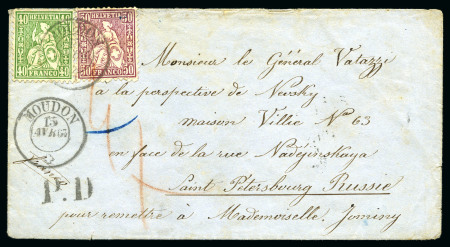 40 HELVETIA 40
40 FRANCO 40
50 HELVETIA 50
50 FRANCO 50
MOUDON
Monsieur le Général Vatazzi
à la perspective de Nevsky
maison Villié No 63
en face de la rue Nadéjinskaya
Saint Pétersbourg Russie
pour remettre à Mademoiselle Jominy
P.D